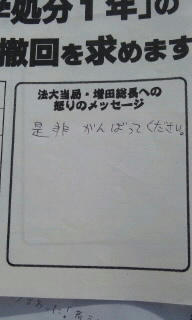 処分１年」の
撤回を求めます
法大当局・増田総長への
怒りのメッセージ
是非 がんばってください。